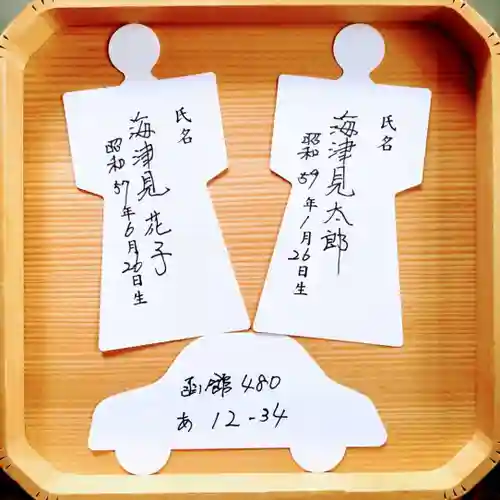 氏名
海津見太郎
昭和59年1月26日生
氏名
海津見花子
昭和57年6月20日生
函館480
あ12-34